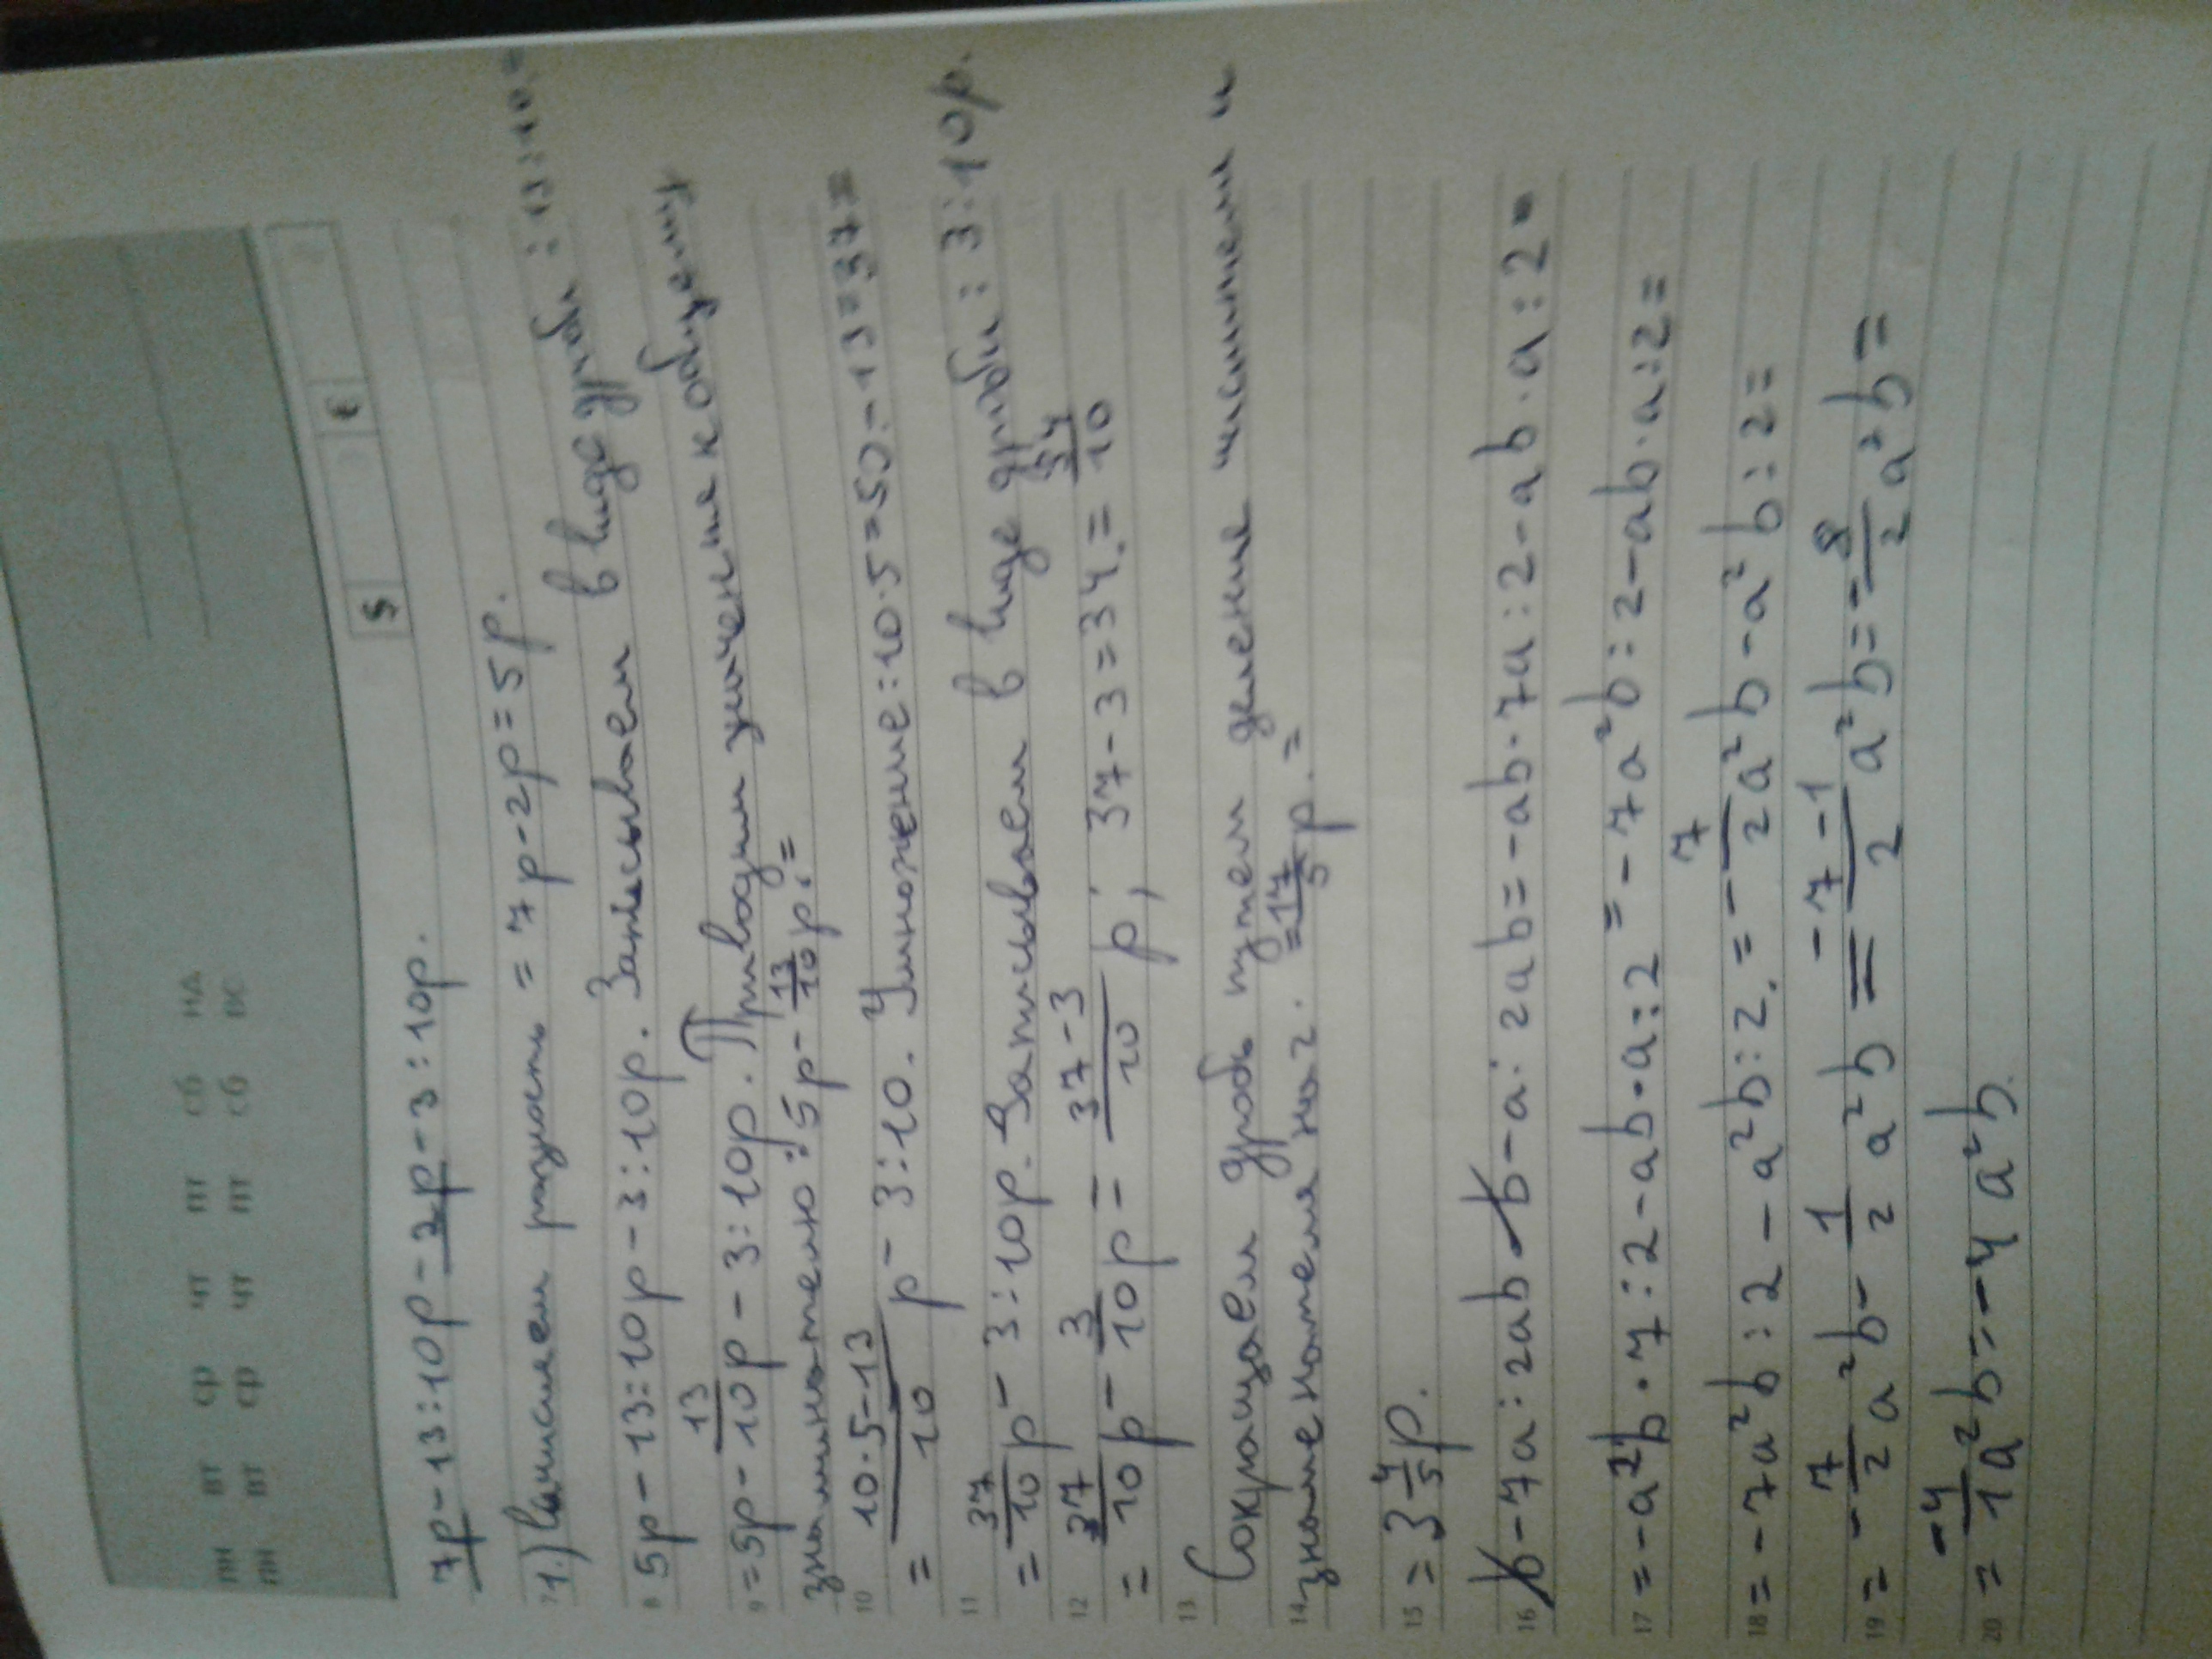 ПН ВТ СР ЧТ ПТ СБ НД
ПН ВТ СР ЧТ ПТ СБ ВС
$ €
7p-13:10p-2p-3:10p.
7 1.) Вычислаем разность = 7p-2p=5p.
8 5p-13:10p-3:10p. Записываем в виде дроби: 13:10.=
9 =5p-13/10p-3:10p. Приводим значения к общему
знаминателю: 5p-13/10p.=
10 =10·5-13/10 p-3:10. Умножение: 10·5=50.-13=37=
11 =37/10p-3:10p. Записываем в виде дроби: 3:10p.
12 =37/10p-3/10p=37-3/10 p; 37-3=34.=34/10
13 Сокращаем дробь путем деление числителя и
14 знаменателя на 2. =17/5p.=
15 =3 4/5p.
16 b-7a:2ab-b-a:2ab=-ab·7a:2-ab·a:2=
17 =-a²b·7:2-ab·a:2=-7a²b:2-ab·a:2=
18 =-7a²b:2-a²b:2.=-7/2a²b-a²b:2=
19 =-7/2a²b-1/2a²b=-7-1/2a²b=-8/2a²b=
20 =-4/1a²b=-4a²b.